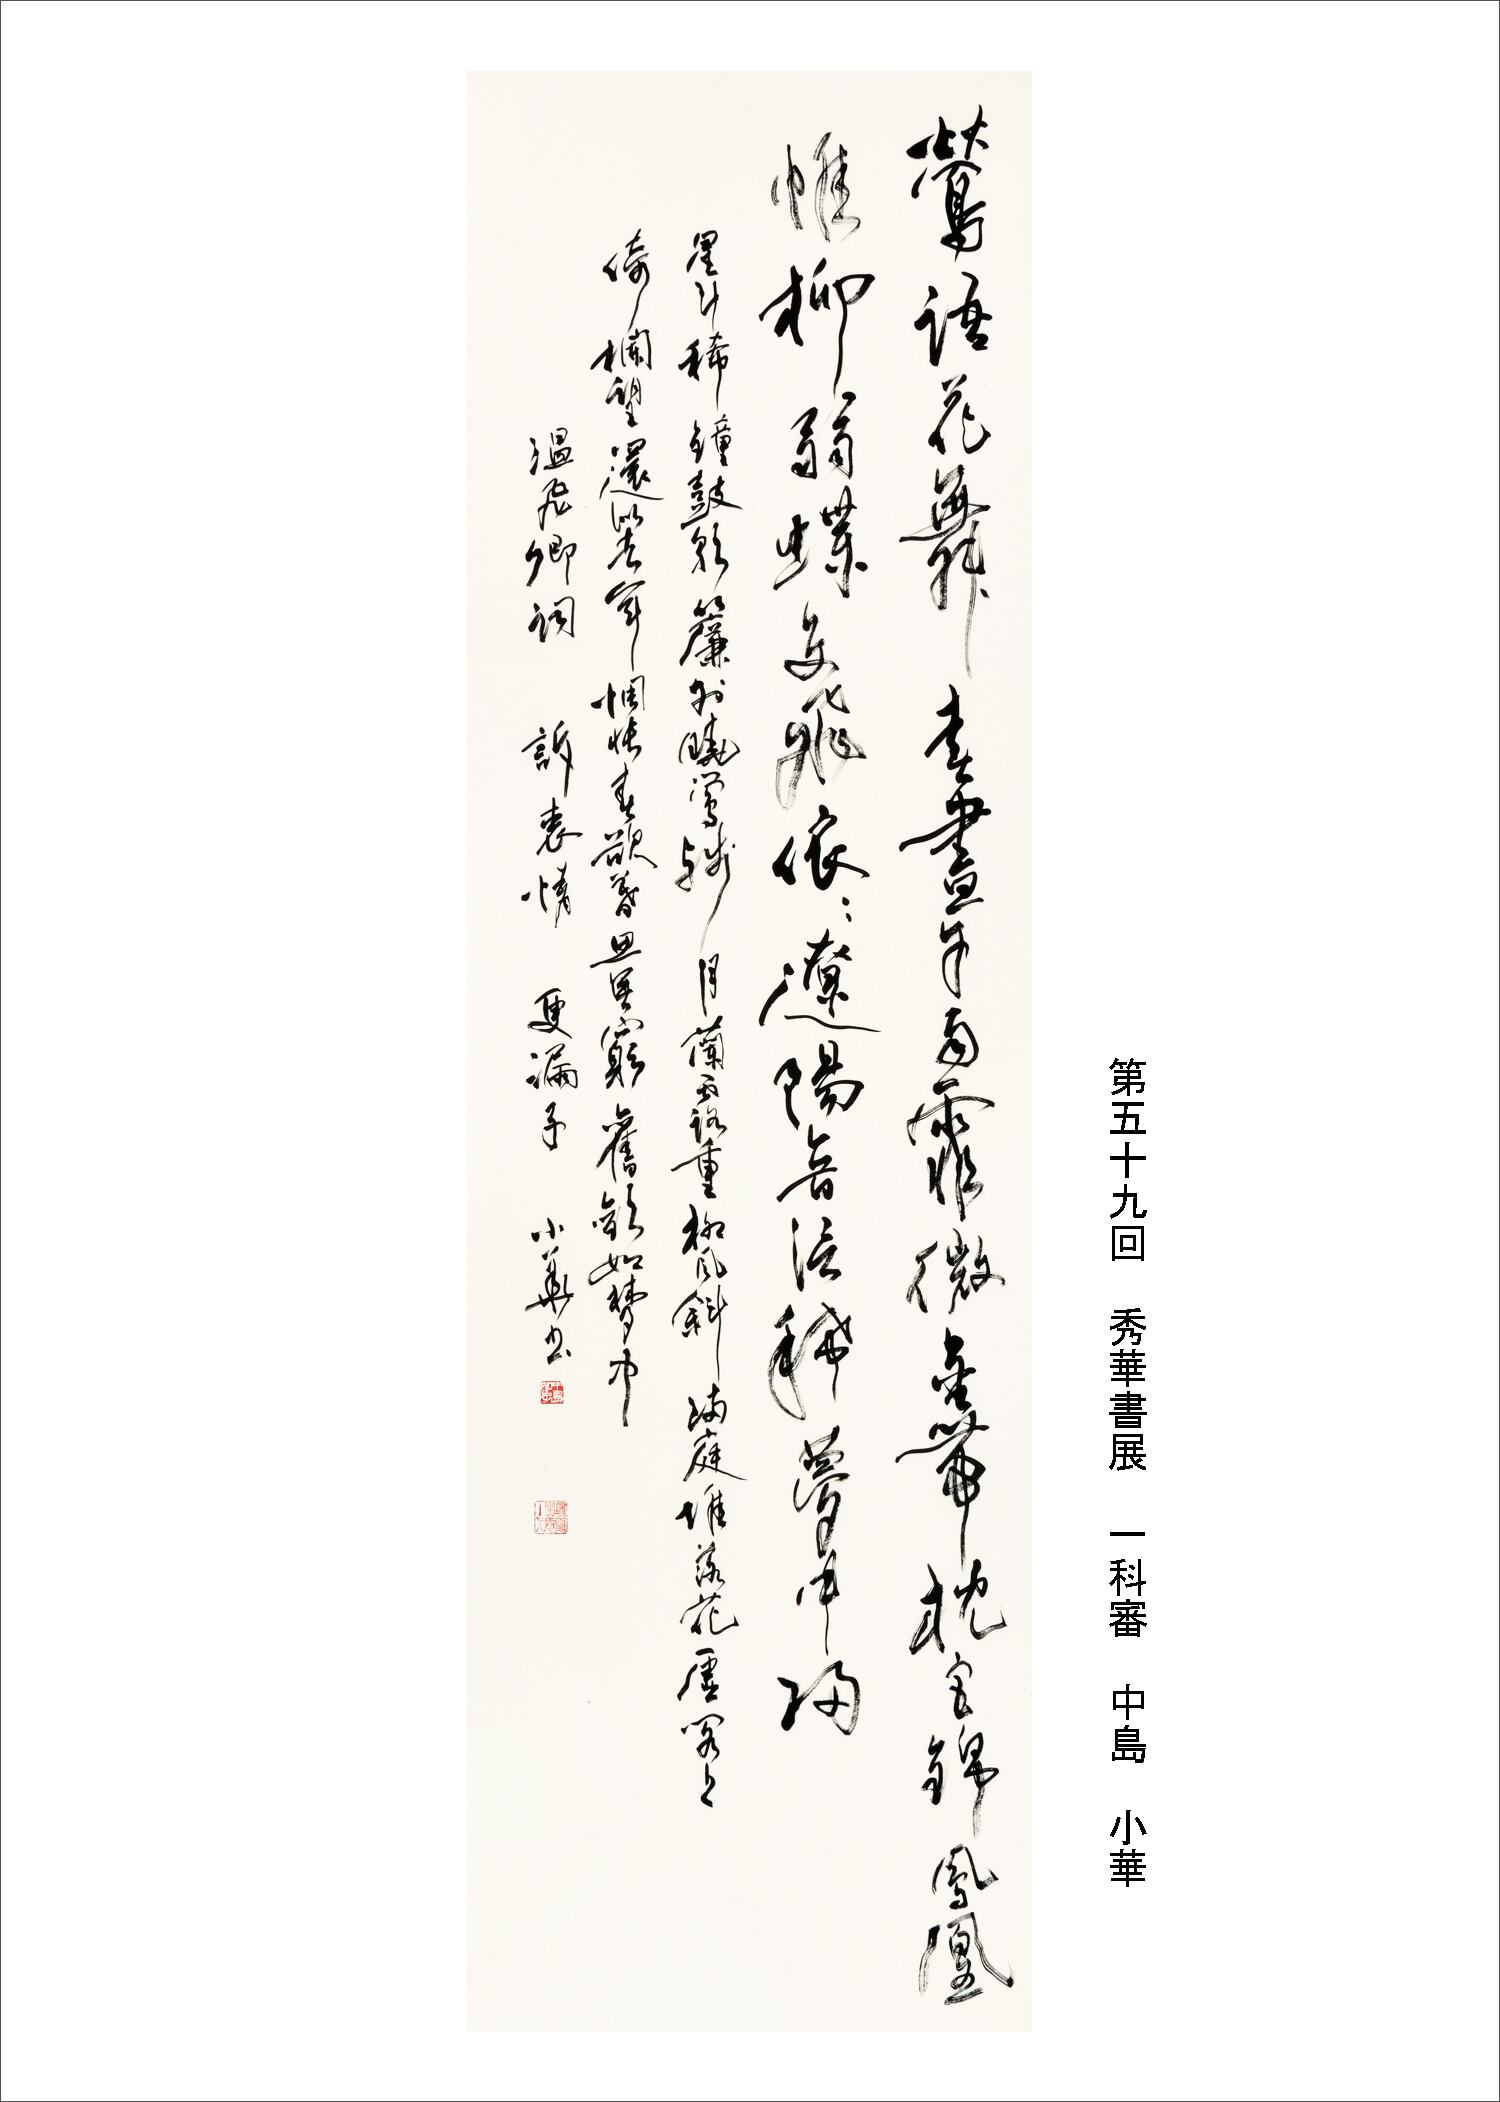 第五十九回 秀華書展 一科審 中島 小華
鶯語花舞春晝午雨霏微金帶枕宮錦鳳凰
帷柳弱蝶交飛依〻遼陽音信稀夢中歸
星斗稀鐘鼓歇簾外曉鶯殘月蘭露重柳風斜滿庭堆落花虛閣上
倚欄望還似去年惆悵春欲暮思無窮舊歡如夢中
溫飛卿詞 訴衷情 更漏子 小華書